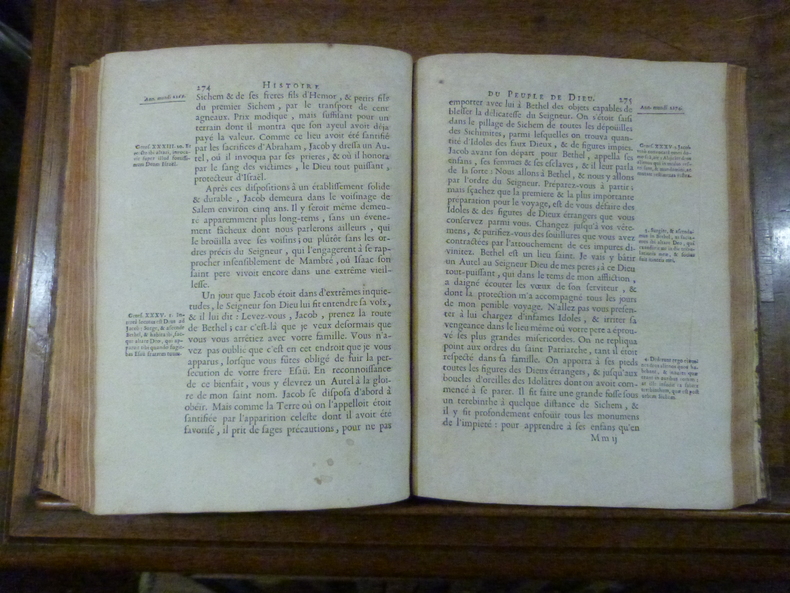 274 HISTOIRE
Ann. mundi
Sichem & de ses freres fils d'Hemor, & petits fils
du premier Sichem, par le transport de cent
agneaux. Prix modique, mais suffisant pour un
terrain dont il montra que son ayeul avoit déja
payé la valeur. Comme ce lieu avoit été sanctifié
par les sacrifices d'Abraham, Jacob y dressa un Au-
tel, où il invoqua par ses prieres, & où il honora
par le sang des victimes, le Dieu tout puissant,
protecteur d'Israël.
Après ces dispositions à un établissement solide
& durable, Jacob demeura dans le voisinage de
Salem environ cinq ans. Il y seroit même demeu-
ré apparemment plus long-tems, sans un évene-
ment fâcheux dont nous parlerons ailleurs, qui
le broüilla avec ses voisins; ou plutôt sans les or-
dres précis du Seigneur, qui l'engagerent à se rap-
procher insensiblement de Mambré, où Isaac son
saint pere vivoit encore dans une extrême vieil-
lesse.
Un jour que Jacob étoit dans d'extrêmes inquié-
tudes, le Seigneur son Dieu lui fit entendre sa voix,
& il lui dit: Levez-vous, Jacob, prenez la route
de Bethel; car c'est-là que je veux desormais que
vous vous arrêtiez avec votre famille. Vous n'a-
vez pas oublié que c'est en cet endroit que je vous
apparus, lorsque vous fûtes obligé de fuir la per-
sécution de votre frere Esaü. En reconnoissance
de ce bienfait, vous y éleverez un Autel à la gloi-
re de mon saint nom. Jacob se disposa d'abord à
obéir. Mais comme la Terre où on l'appelloit étoit
sanctifiée par l'apparition celeste dont il avoit été
favorisé, il prit de sages précautions, pour ne pas
Genes. XXXIII. 20.
Genes. XXXV. 1.
DU PEUPLE DE DIEU. 275
Ann. mundi
emporter avec lui à Bethel des objets capables de
blesser la délicatesse du Seigneur. On s'étoit saisi
dans le pillage de Sichem de toutes les dépoüilles
des Sichimites, parmi lesquelles on trouva quan-
tité d'Idoles des faux Dieux, & de figures impies.
Jacob avant son départ pour Bethel, appella ses
enfans, ses femmes & ses esclaves, & il leur parla
de la sorte: Nous allons à Bethel, & nous y allons
par l'ordre du Seigneur. Préparez-vous à partir;
mais sçachez que la premiere & la plus importante
préparation pour le voyage, est de vous défaire des
Idoles & des figures de Dieux étrangers que vous
conservez parmi vous. Changez jusqu'à vos vête-
mens, & purifiez-vous des soüillures que vous avez
contractées par l'attouchement de ces impures di-
vinitez. Bethel est un lieu saint. Je vais y bâtir
un Autel au Seigneur Dieu de mes peres; à ce Dieu
tout-puissant, qui dans le tems de mon affliction,
a daigné écouter les vœux de son serviteur, &
dont la protection m'a accompagné tous les jours
de mon penible voyage. N'allez pas vous presen-
ter à lui chargez d'infames Idoles, & irriter sa
vengeance dans le lieu même où votre pere a éprou-
vé ses plus grandes misericordes. On ne repliqua
point aux ordres du saint Patriarche, tant il étoit
respecté dans sa famille. On apporta à ses pieds
toutes les figures des Dieux étrangers, & jusqu'aux
boucles d'oreilles des Idolâtres dont on avoit com-
mencé à se parer. Il fit faire une grande fosse sous
un terebinthe à quelque distance de Sichem, &
il y fit profondement enfoüir tous les monumens
de l'impieté: pour apprendre à ses enfans qu'en
M m ij
Genes. XXXV.